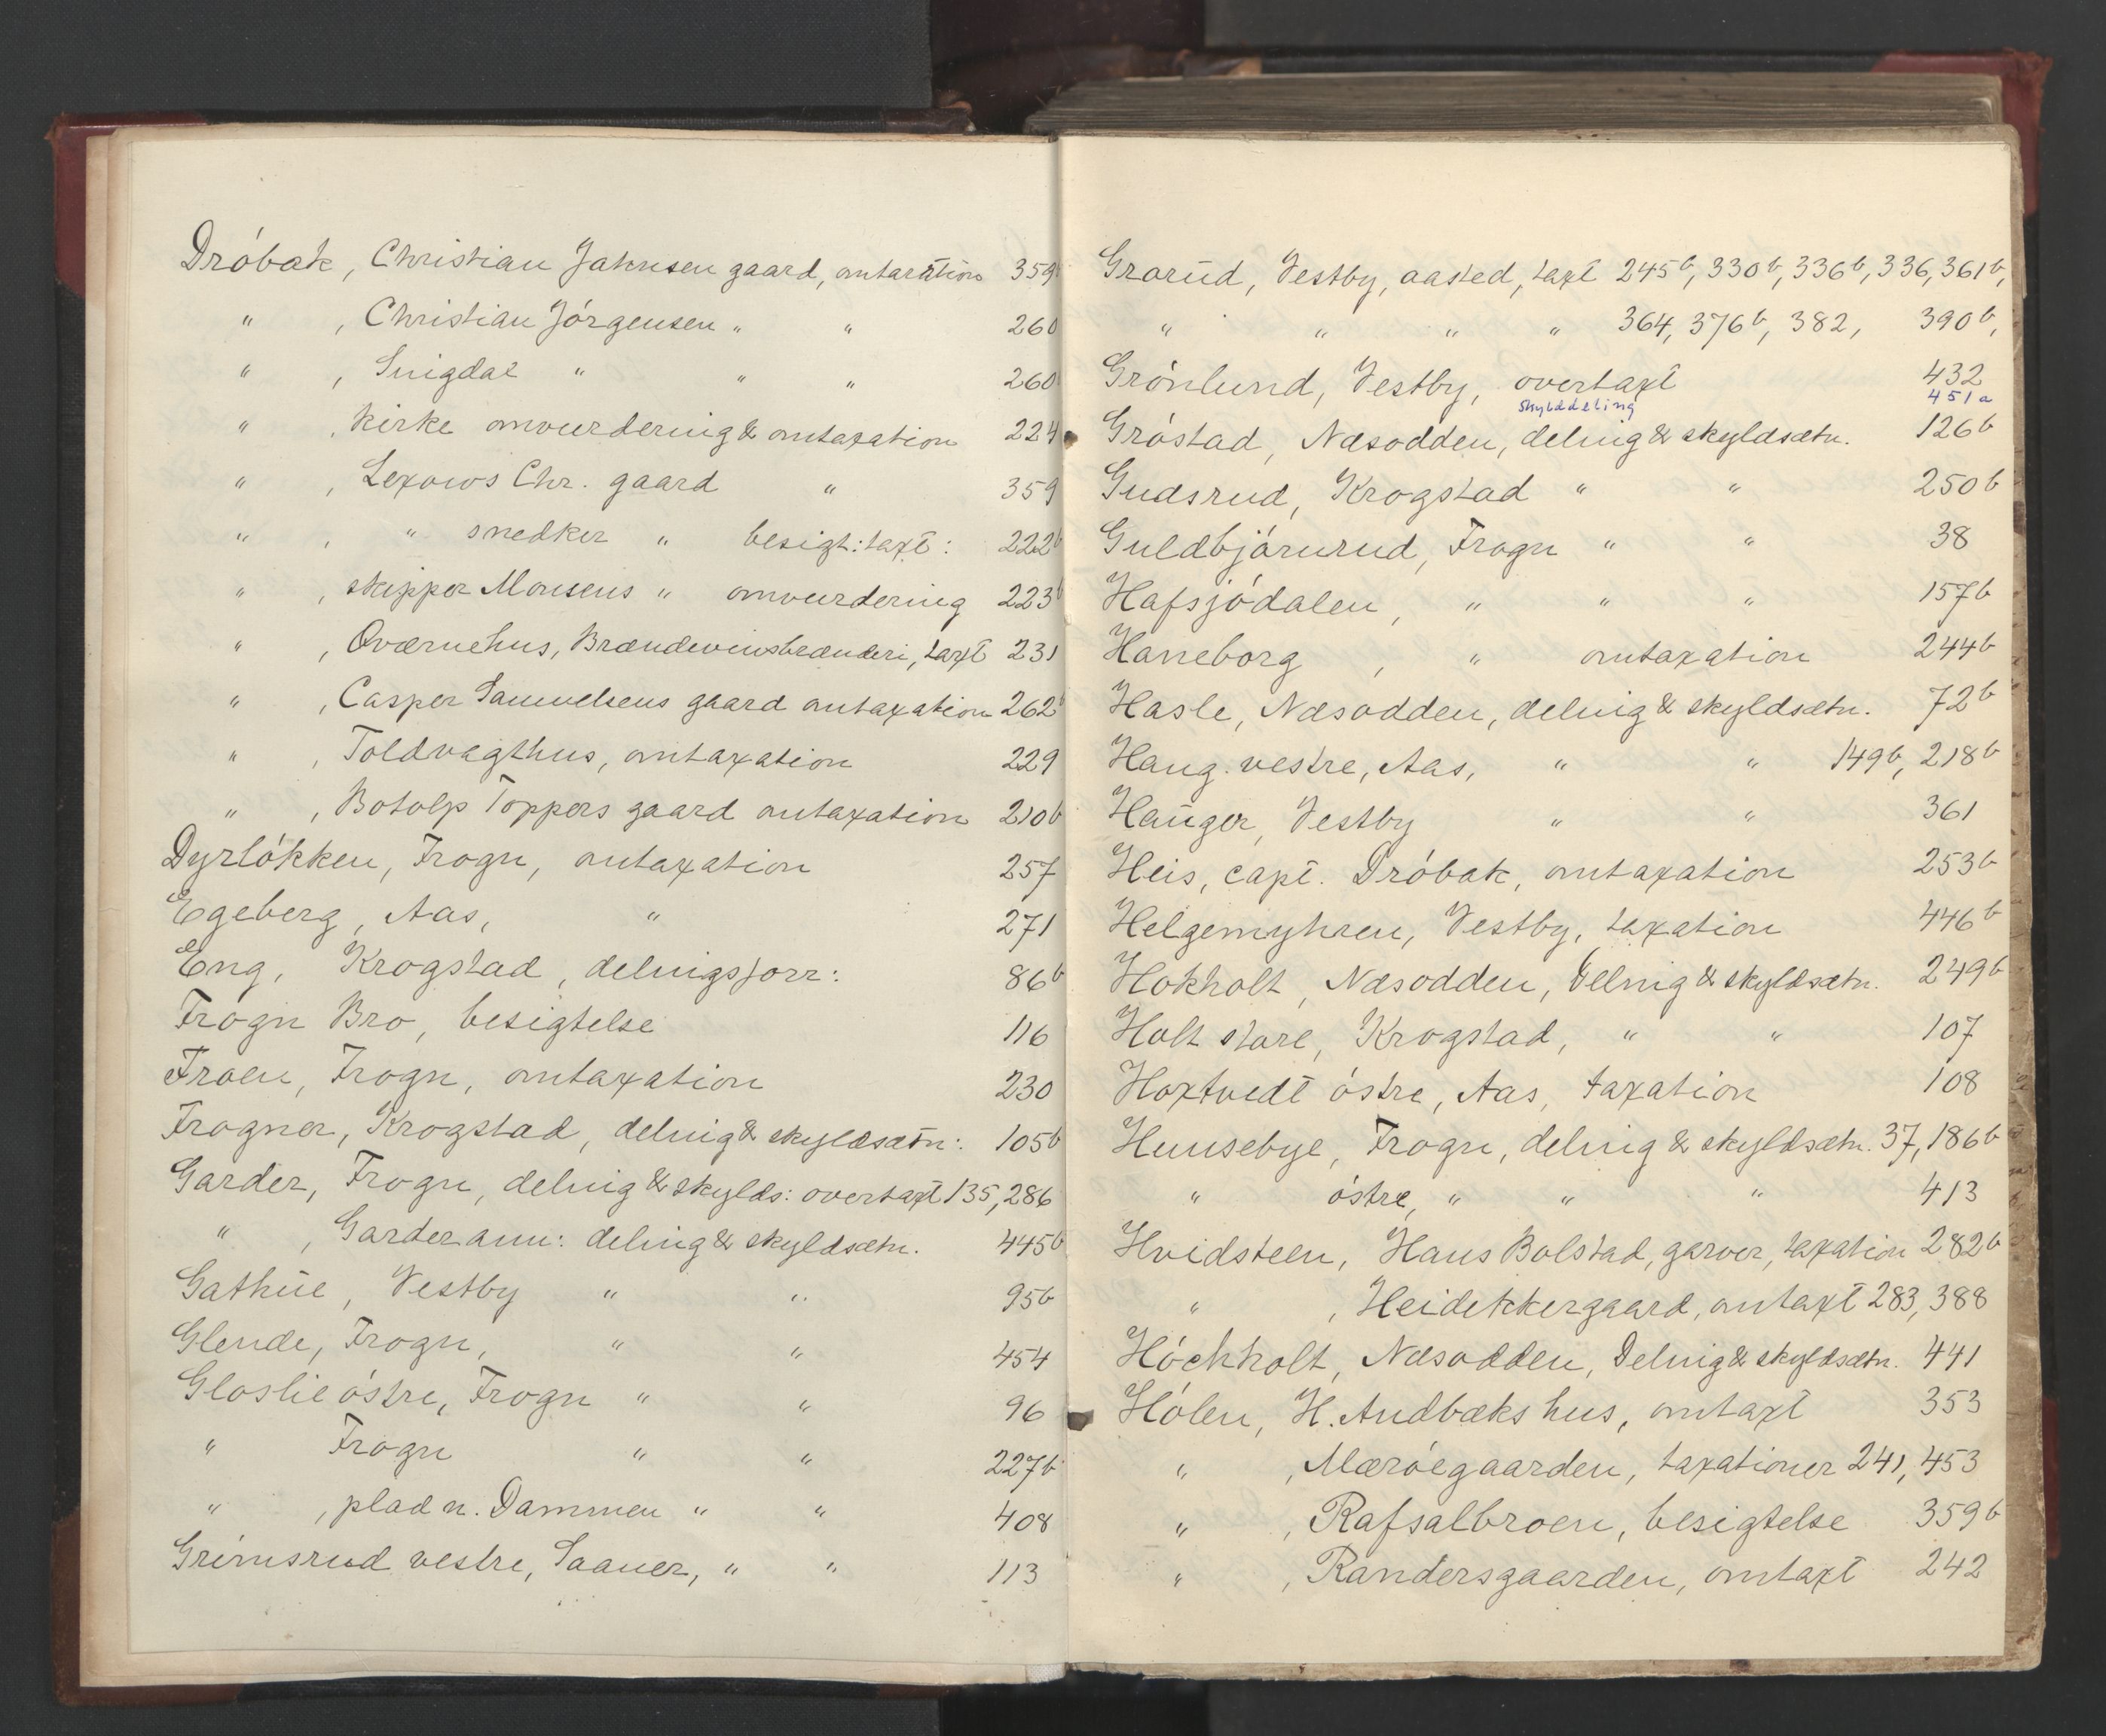 Dróbak, Christian Jahnsen gaard, omtaxation 359b
" , Christian Jórgensen " " 260
" , Snigdal " " " 260
" , kirke omvurdering & omtaxation 224
" , Lexows Chr. gaard " 359
" , " snedker " besigt: taxt: 222b
" , skipper Monsens " omvurdering 223b
" , Qværnehus, Brændevinsbrænderi, taxt 231
" , Casper Samuelsens gaard omtaxation 262b
" , Toldvagthus, omtaxation 229
" , Botolp Toppers gaard omtaxation 210b
Dyrlókken, Frogn, omtaxation 257
Egeberg, Aas, " 271
Eng, Krogstad, delnigsforr: 86b
Frogn Bro, besigtelse 116
Froen, Frogn, omtaxation 230
Frogner, Krogstad, delnig & skyldsætn: 105b
Garder, Frogn, delnig & skylds: overtaxt 135, 286
" , Garder ann: delnig & skyldsætn. 445b
Gathue, Vestby " " 95b
Glende, Frogn, " " 454
Gloslie óstre, Frogn " " 96
" Frogn " " 227b
" , plad n. Dammen " " 408
Grimsrud vestre, Saaner, " " 113
Grorud, Vestby, aasted, taxt 245b, 330b, 336b, 336, 361b,
" " " " 364, 376b, 382, 390b,
Grónlund, Vestby, overtaxt 432
skylddeling 451a
Gróstad, Næsodden, delnig & skyldsætn. 126b
Gudsrud, Krogstad " " 250b
Guldbjórnrud, Frogn " " 38
Hafsjódalen, " " " 157b
Haneborg , " omtaxation 244b
Hasle, Næsodden, delnig & skyldsætn. 72b
Haug vestre, Aas, " " 149b, 218b
Hauger, Vestby " " 361
Heis, capt. Dróbak, omtaxation 253b
Helgemyhren, Vestby, taxation 446b
Hokholt, Næsodden, Delnig & skyldsætn. 249b
Holt store, Krogstad, " " 107
Hoxtvedt óstre, Aas, taxation 108
Hunsebye, Frogn, delnig & skyldsætn. 37, 186b
" óstre, " " " 413
Hvidsteen, Hans Bolstad, garver, taxation 282b
" , Heidekkergaard, omtaxt 283, 388
Hóchholt, Næsodden, Delnig & skyldsætn. 441
Hólen, H. Andbæks hus, omtaxt 353
" , Mæróegaarden, taxationer 241, 453
" , Rafsalbroen, besigtelse 359b
" , Randersgaarden, omtaxt 242